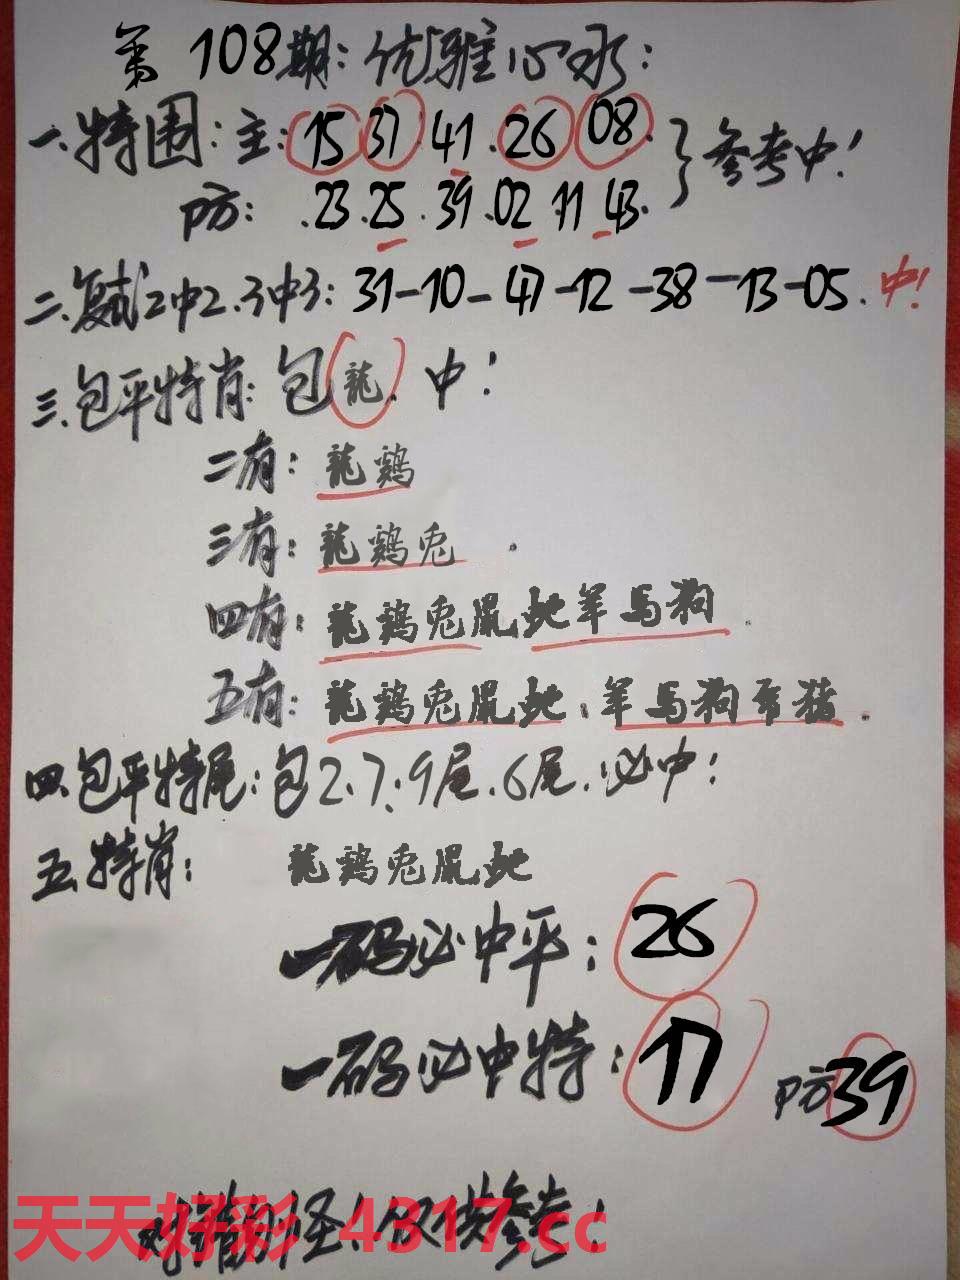 第108期:优雅心水:
一.特围:主:15 37 41.26 08.}参考中!
防:.23.25.39.02 11 43.
二.复式2中2.3中3:31-10-47-12-38-13-05.中!
三.包平特肖:包龍.中!
二有:龍鷄
三有:龍鷄兎.
四有:龍鷄兎鼠蛇羊马狗.
五有:龍鷄兎鼠蛇.羊马狗 猪.
四.包平特尾:包2.7.9尾.6尾.必中!
五.特肖:龍鷄兎鼠蛇
一码必中平:26
一码必中特:17 防39
对错勿怪!仅供参考!
天天好彩 4317.cc